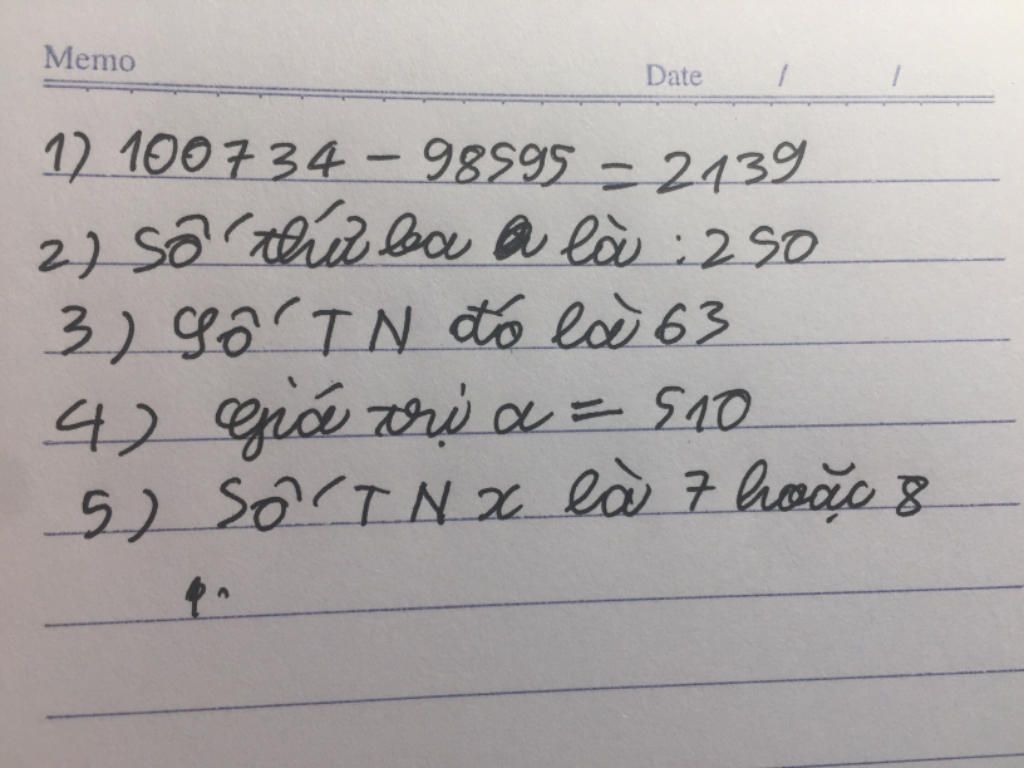 Memo
Date / /
1) 100734 - 98595 = 2139
2) Số thứ ba là : 250
3) Số TN đó là 63
4) giá trị a = 510
5) Số TN x là 7 hoặc 8